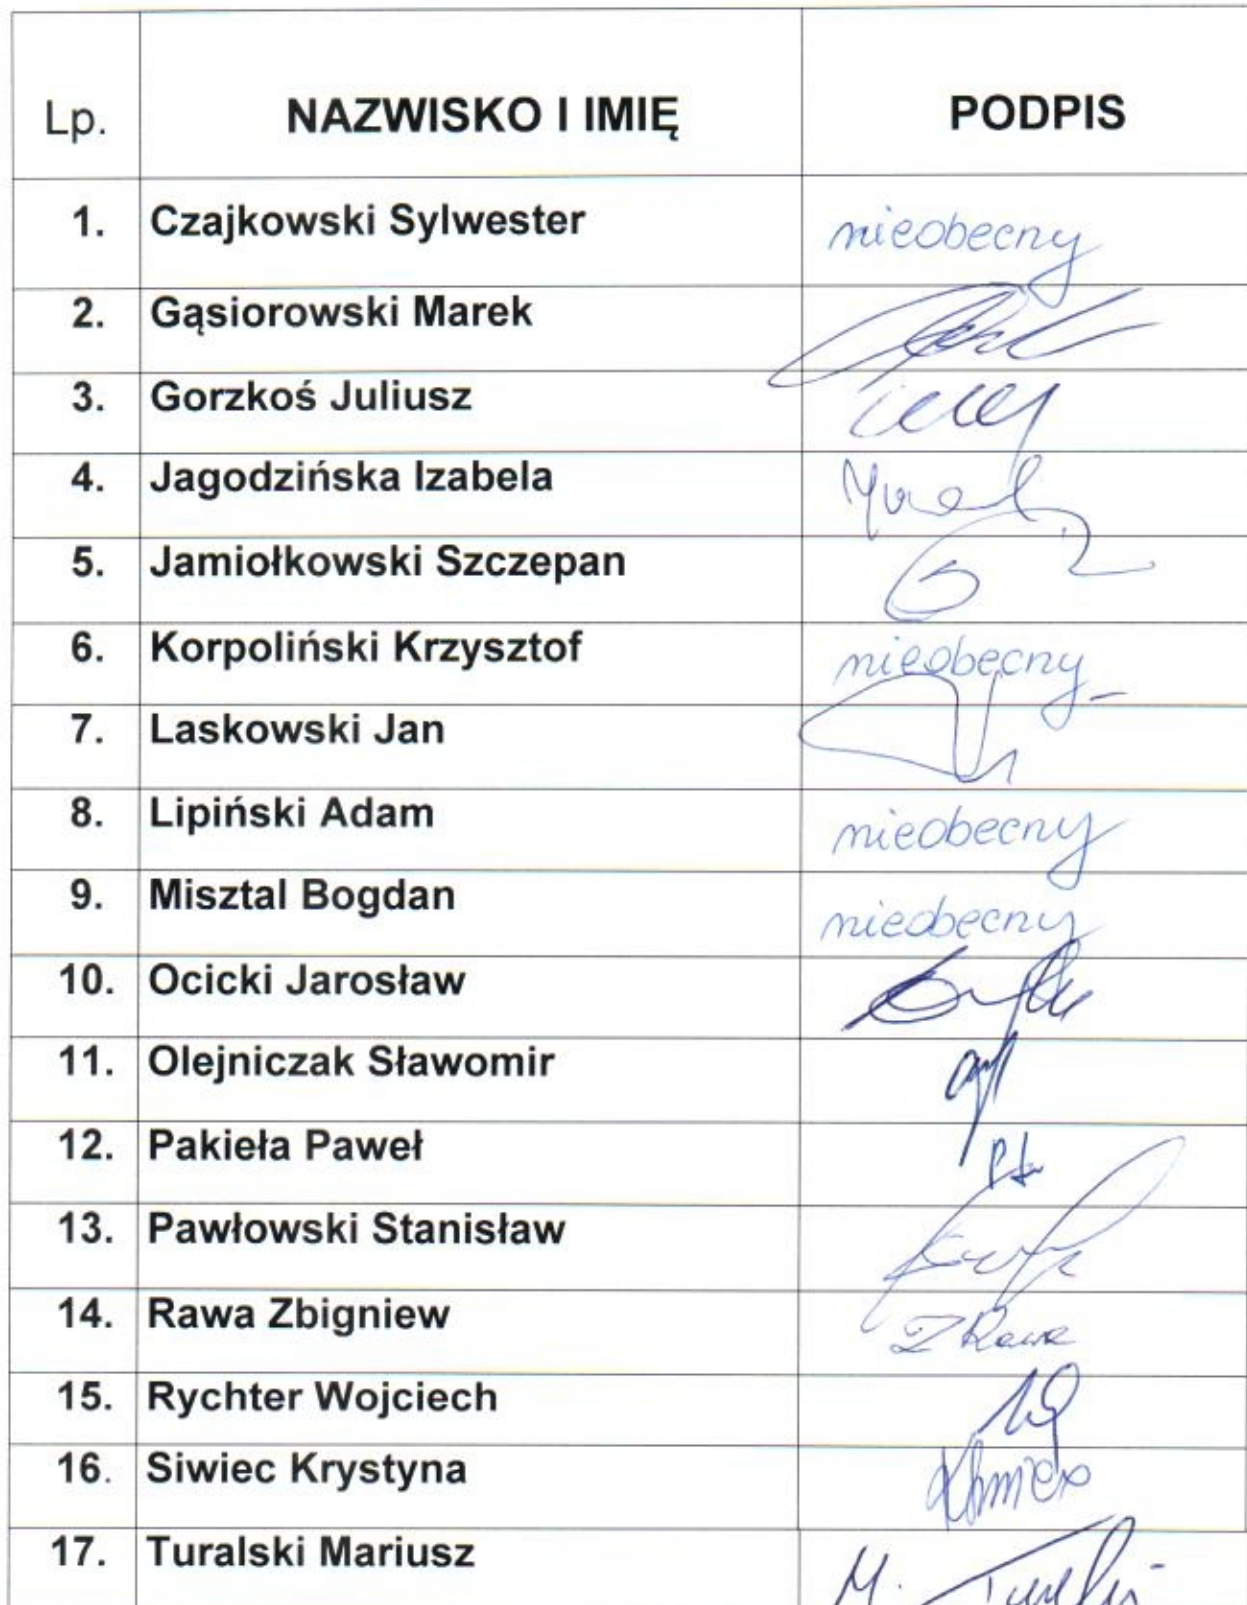 Lp. NAZWISKO I IMIĘ PODPIS
1. Czajkowski Sylwester nieobecny
2. Gąsiorowski Marek
3. Gorzkoś Juliusz
4. Jagodzińska Izabela
5. Jamiołkowski Szczepan
6. Korpoliński Krzysztof nieobecny
7. Laskowski Jan
8. Lipiński Adam nieobecny
9. Misztal Bogdan nieobecny
10. Ocicki Jarosław
11. Olejniczak Sławomir
12. Pakieła Paweł
13. Pawłowski Stanisław
14. Rawa Zbigniew Z Rawa
15. Rychter Wojciech
16. Siwiec Krystyna
17. Turalski Mariusz